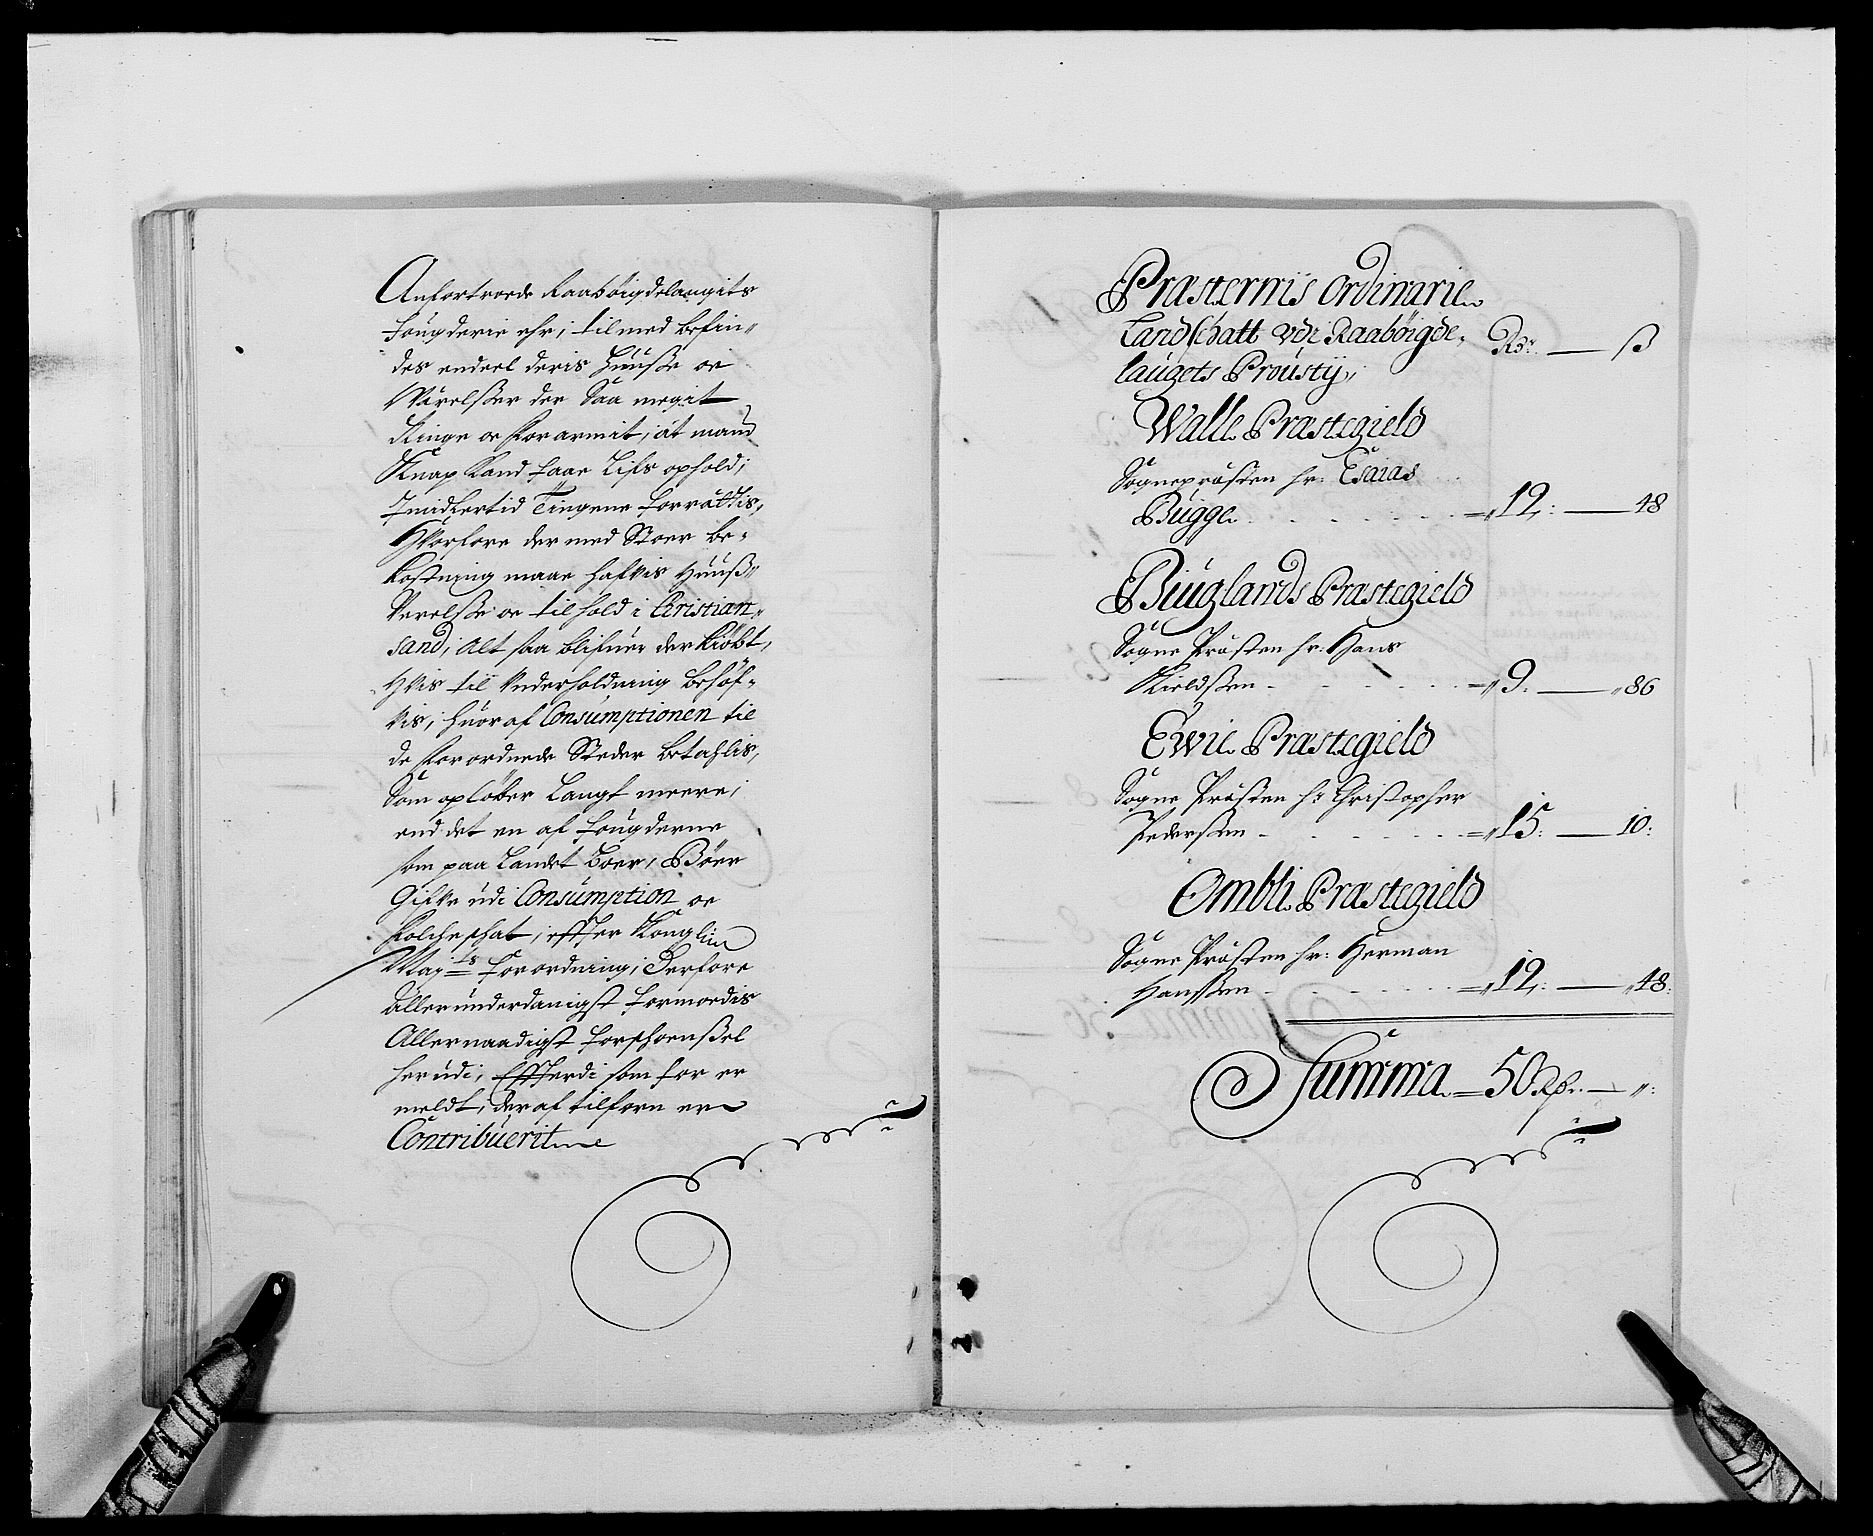 Anfortroede Raabøigdelaugits
fougderie ehr; til med befin„
des endeel deris Huuße oc
Værelßer der Saa meget
Ringe oc forarmit, at mand
Knap Kand faae Lifs ophold;
Imidlertid Tingene forrättis,
Hvorfore der med Stoer be„
kostning maae hafvis Huuß„
Verelße oc tilhold i Christian„
sand, Alt saa blifuer der Kiöbt,
Hvis til Underholdning behöf„
vis, huoraf Consumptionen til
de forordnede Steder betahlis,
Som opløber Langt meere,
end det en af fougderne
som paa Landet boer, Bøer
Gifve udi Consumption oc
folcheschat, effter Kongl:
May:ts forordning; Derfore
Allerunderdanigst formoedis
Allernaadigst forschoenßel
her udi, Effterdi som for er
meldt, deraf tilforn er
Contribuerit
Præsternis Ordinarie
Landschatt udi Raabøigde„
laugets Prousty„ Rdr — ß
Walle Præstegield
Sognepræsten hr: Esaias
Bugge = 12: — 48
Biuglands Præstegield
Sogne Præsten hr: Hans
Kieldßen = 9. — 86
Ewie Præstegield
Sogne Præsten hr Christopher
Pederßen = 15: — 10:
Ombli Præstegield
Sogne Præsten hr: Herman
Hanßen = 12: — 48:
Summa = 50 Rdr. — „: